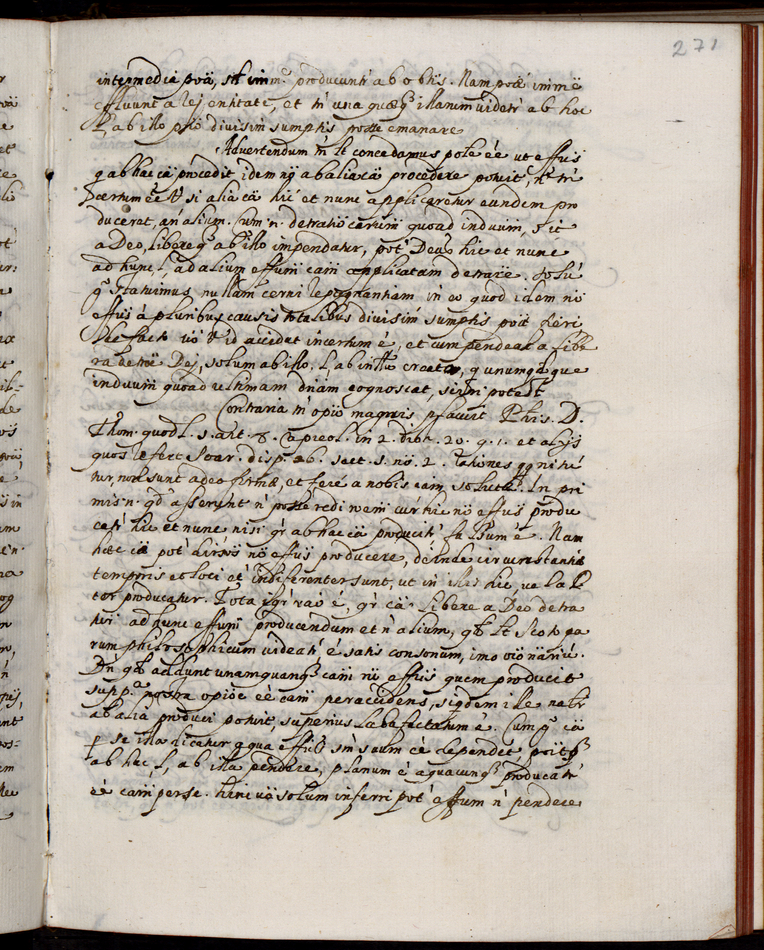 271
intermedia poä, sit imm. producunt' ab obtis. Nam poä immë
effluunt a rej entitate, et tn' una quæq; illarum videtr' ab hoc
l, ab illo pño divisim sumptis posse emanare
Advertendum tn' lt concedamus posse ëe ut effus
q ab hac cä procedit idem nö ab alia cä procedere potuit, n' tn'
certum ëe si alia cä hic et nunc applicaretur eundem pro
duceret, an alium. Cum n. detratiö cärum quoad induum, sit
a Deo, libere q; ab illo impendatur, pot' Deus hic et nunc
ad hunc l, ad alium effum cam applicatam detraïe. Solu'
q' statuimus nullam cerni repugnantiam in eo quod idem nö
effus à pluribus causis totalibus divisim sumptis poät fieri
De facto vö id accidat incertum ë, et cum pendeat a libe
ra detnë Dej, solum ab illo, l, ab intllu creato, q unumq'que
induum quoad ultimam driam cognoscat, sciri potest
Contraria tn' opiö magnis plauit Phis. D.
Thom. quodl. 5. art. 8. Capreol. in 2. dist. 20. q. 1. et alijs
quos refert Soar. disp. 26. sect. 5. nö. 2. Rationes qq nitü
tur, non sunt adeo firmæ, et fere a nobis iam solutæ. In pri
mis n. qd' asserunt n' posse redi ioem cur hic nö effus produ
catr' hic et nunc nisi qr ab hac cä producitr' falsum ë. Nam
hæc cä pot' divsos nö effus producere, deinde circumstantiæ
tempris et loci, et' indiferenter sunt, ut in illis hic, vel al
ter producatur. Tota igr' raö ë, qr cä libere a Deo detra
tur ad hunc effum producendum et n' alium, qd lt Scoto pa
rum philosophicum videatr' ë satis consonum, imo viö nariu'.
Dn qd addunt unamquamq; cam nö effus quem producit
supp.ª nostra opiöe ëe cam per accidens, siqdem ille natr
ab alia produci potuit, superius labafactatum ë. Cum q' cä
p se illa dicatur q qua effus sm suum ëe dependet, poitq;
ab hac, l, ab illa pendere, planum ë a quacunq; producatr'
ëe cam per se. hinc vö solum inferri pot' effum n' pendere